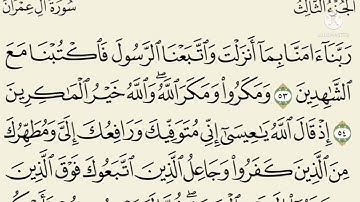 الجُزْءُ الثَّالِثُ سُورَةُ آلِ عِمْرَانَ
رَبَّنَآ ءَامَنَّا بِمَآ أَنزَلْتَ وَٱتَّبَعْنَا ٱلرَّسُولَ فَٱكْتُبْنَا مَعَ
ٱلشَّٰهِدِينَ ٥٣ وَمَكَرُوا۟ وَمَكَرَ ٱللَّهُ ۖ وَٱللَّهُ خَيْرُ ٱلْمَٰكِرِينَ
٥٤ إِذْ قَالَ ٱللَّهُ يَٰعِيسَىٰٓ إِنِّى مُتَوَفِّيكَ وَرَافِعُكَ إِلَىَّ وَمُطَهِّرُكَ
مِنَ ٱلَّذِينَ كَفَرُوا۟ وَجَاعِلُ ٱلَّذِينَ ٱتَّبَعُوكَ فَوْقَ ٱلَّذِينَ